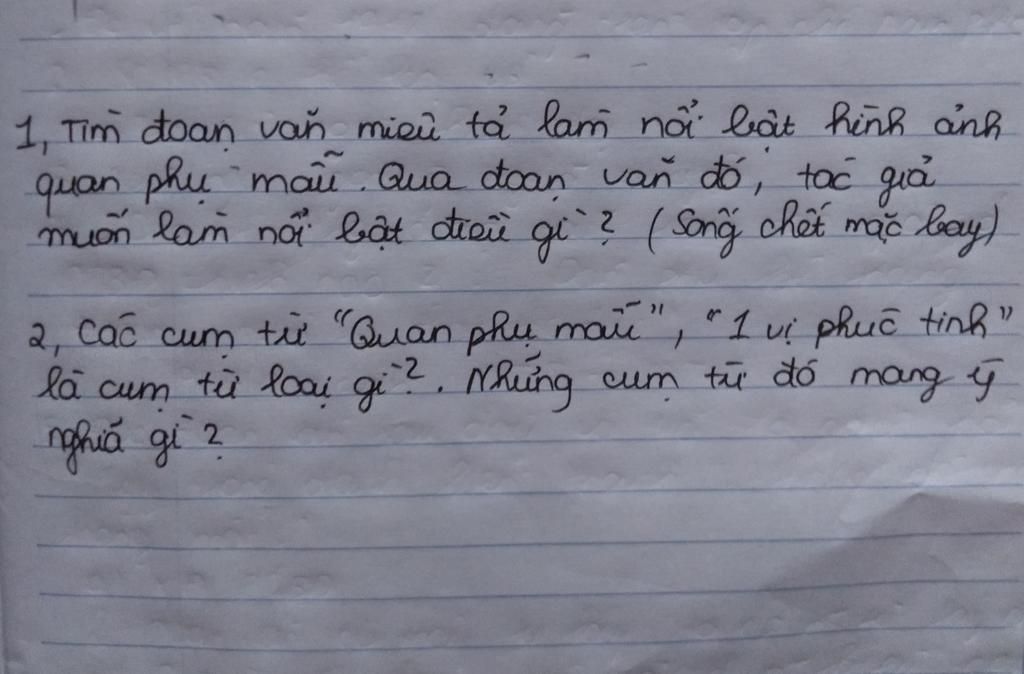 1, Tìm đoạn văn miêu tả làm nổi bật hình ảnh
quan phụ mẫu. Qua đoạn văn đó, tác giả
muốn làm nổi bật điều gì? (Sống chết mặc bay)
2, Các cụm từ "Quan phụ mẫu", "1 vị phúc tinh"
là cụm từ loại gì?. Những cụm từ đó mang ý
nghĩa gì?